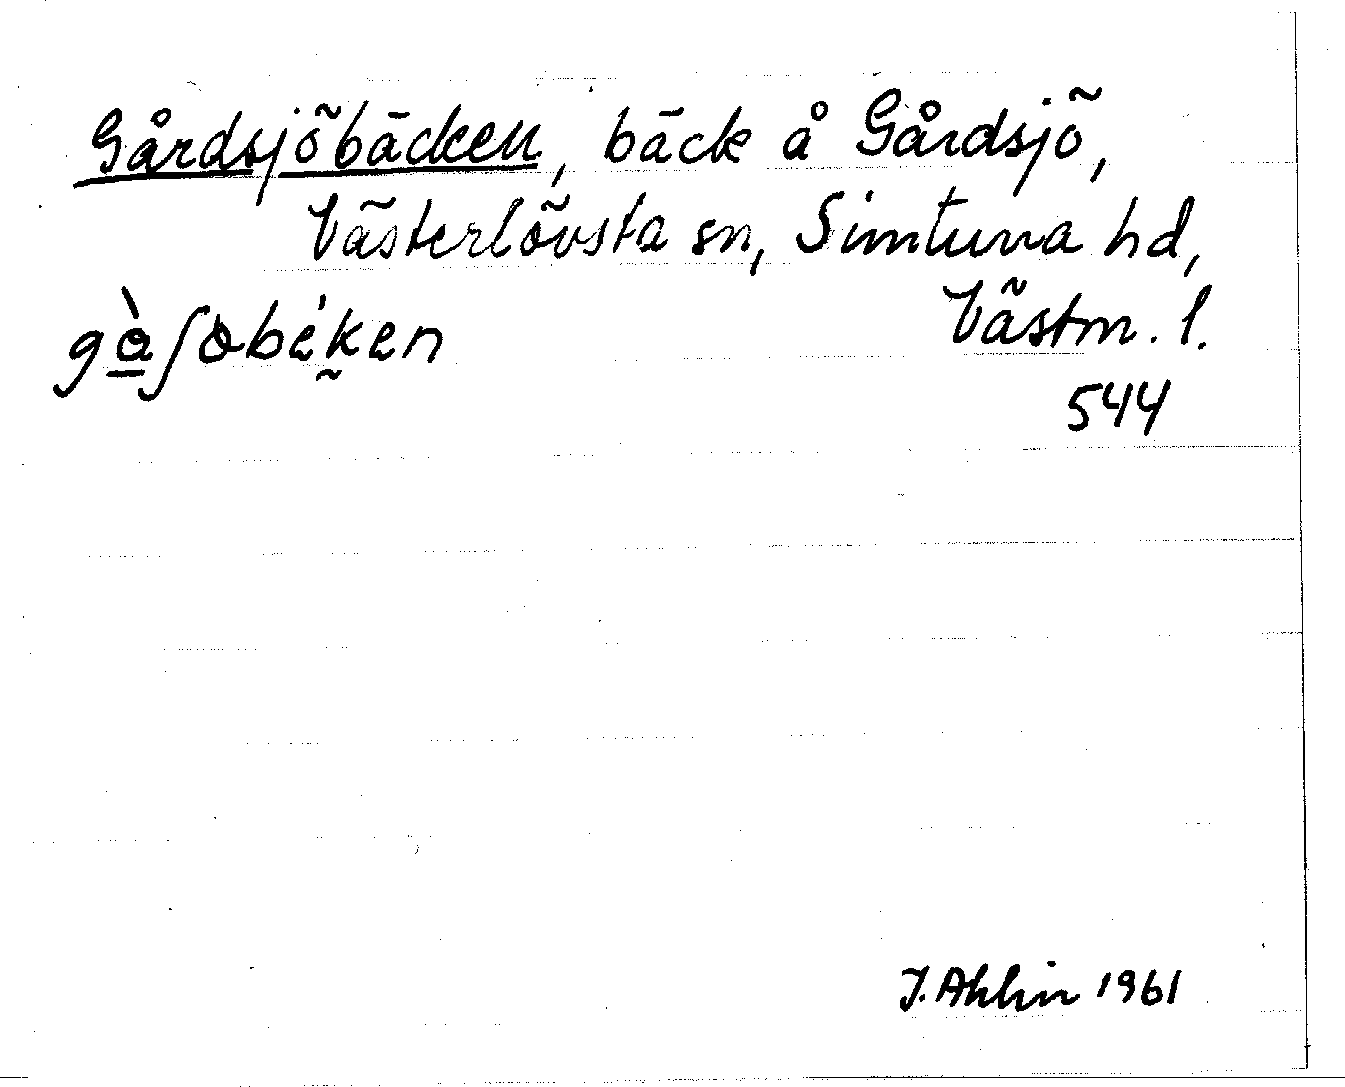 Gårdsjöbäcken, bäck å Gårdsjö,
Västerlövsta sn, Simtuna hd,
Västm. l.
544
J. Ahlin 1961